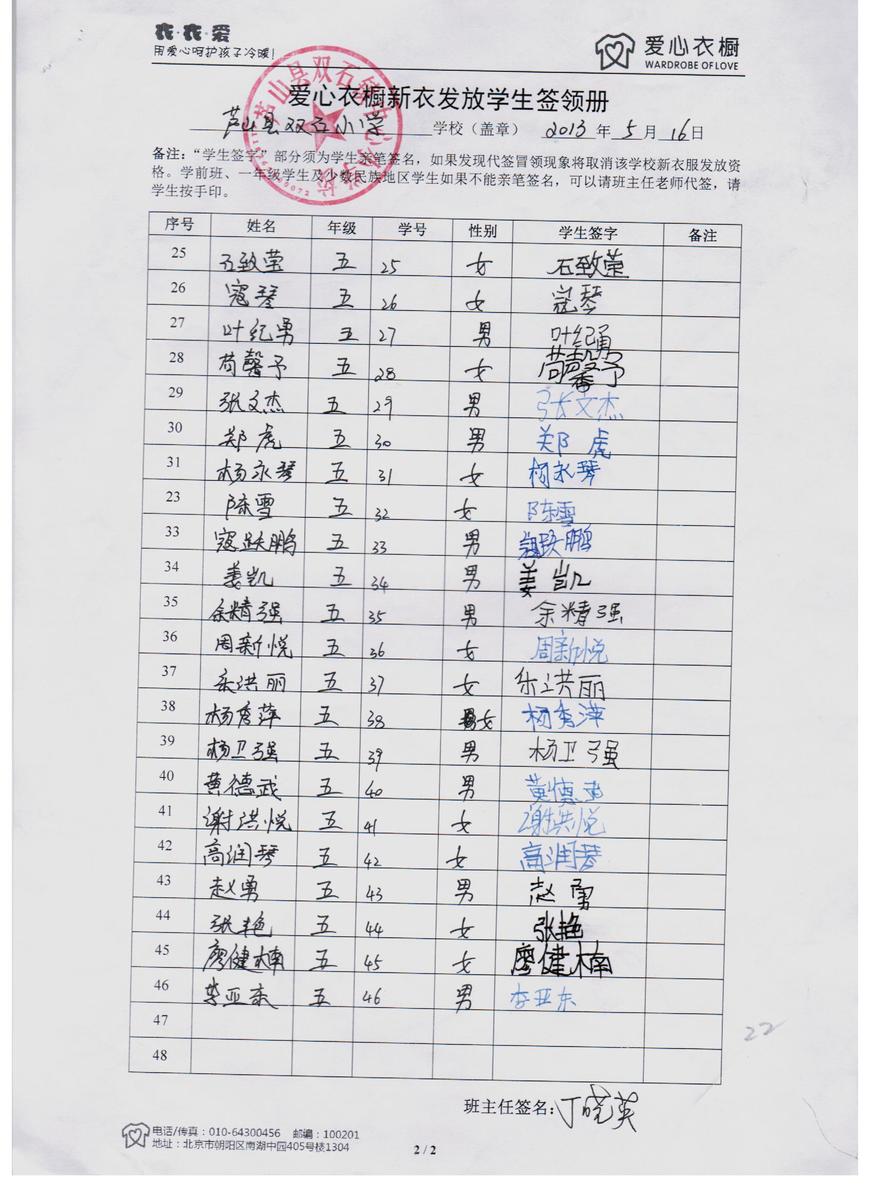 衣·衣·爱
用爱心呵护孩子冷暖!
爱心衣橱
WARDROBE OF LOVE
爱心衣橱新衣发放学生签领册
芦山县双石小学 学校（盖章） 2013 年 5 月 16 日
备注：“学生签字”部分须为学生亲笔签名，如果发现代签冒领现象将取消该学校新衣服发放资
格。学前班、一年级学生及少数民族地区学生如果不能亲笔签名，可以请班主任老师代签，请
学生按手印。
序号 姓名 年级 学号 性别 学生签字 备注
25 石致莹 五 25 女 石致莹
26 寇琴 五 26 女 寇琴
27 叶纪勇 五 27 男 叶纪勇
28 苟馨予 五 28 女 苟馨予
29 张文杰 五 29 男 张文杰
30 郑虎 五 30 男 郑虎
31 杨永琴 五 31 女 杨永琴
23 陈雪 五 32 女 陈雪
33 寇跃鹏 五 33 男 寇跃鹏
34 姜凯 五 34 男 姜凯
35 余精强 五 35 男 余精强
36 周新悦 五 36 女 周新悦
37 乐洪丽 五 37 女 乐洪丽
38 杨秀萍 五 38 女 杨秀萍
39 杨卫强 五 39 男 杨卫强
40 黄德武 五 40 男 黄德武
41 谢洪悦 五 41 女 谢洪悦
42 高润琴 五 42 女 高润琴
43 赵勇 五 43 男 赵勇
44 张艳 五 44 女 张艳
45 廖健楠 五 45 女 廖健楠
46 李亚东 五 46 男 李亚东
47
48
22
班主任签名：丁晓英
电话/传真：010-64300456 邮编：100201
地址：北京市朝阳区南湖中园405号楼1304
2 / 2